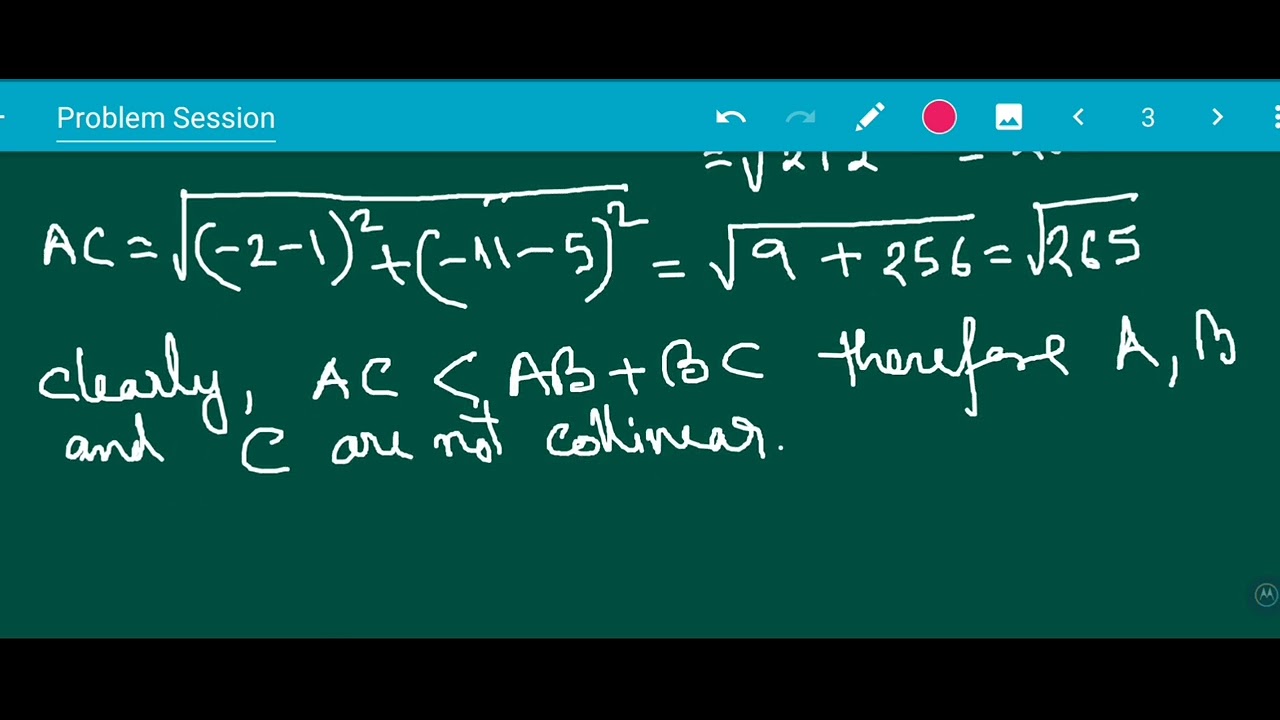 Problem Session
3
= √212
AC = √(-2-1)² + (-11-5)² = √9 + 256 = √265
clearly, AC < AB + BC therefore A, B
and C are not collinear.